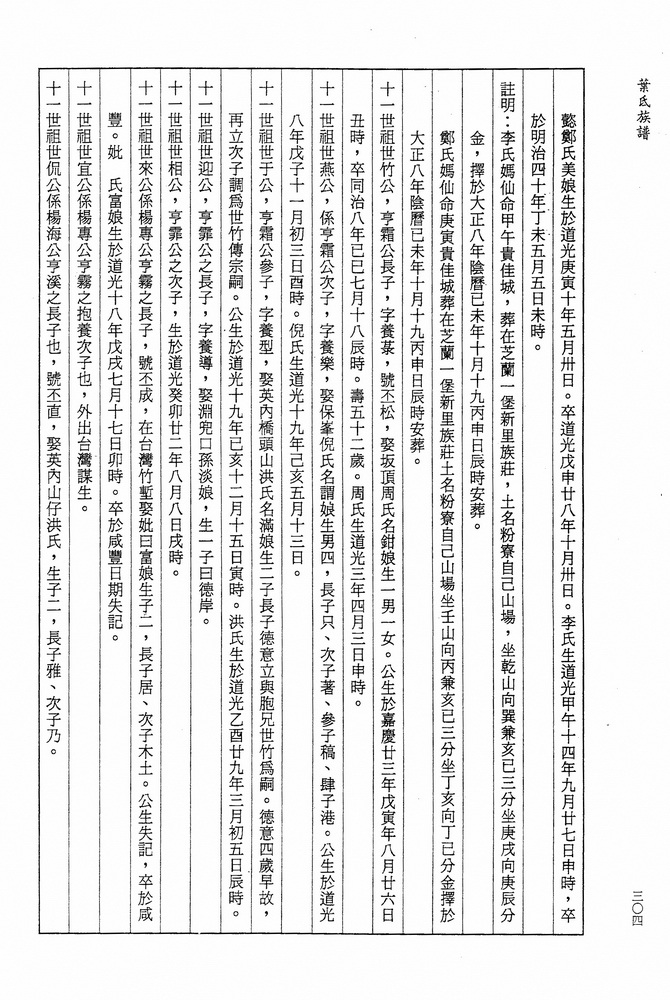 葉氏族譜
懿鄭氏美娘生於道光庚寅十年五月卅日。卒道光戊申廿八年十月卅日。李氏生道光甲午十四年九月廿七日申時，卒
於明治四十年丁未五月五日未時。
註明：李氏媽仙命甲午貴佳城，葬在芝蘭一堡新里族莊，土名粉寮自己山場，坐乾山向巽兼亥巳三分坐庚戌向庚辰分
金，擇於大正八年陰曆己未年十月十九丙申日辰時安葬。
鄭氏媽仙命庚寅貴佳城葬在芝蘭一堡新里族莊土名粉寮自己山場坐壬山向丙兼亥巳三分坐丁亥向丁巳分金擇於
大正八年陰曆己未年十月十九丙申日辰時安葬。
十一世祖世竹公，亨霜公長子，字養菉，號丕松，娶坂頂周氏名鉗娘生一男一女。公生於嘉慶廿三年戊寅年八月廿六日
丑時，卒同治八年己巳七月十八辰時。壽五十二歲。周氏生道光三年四月三日申時。
十一世祖世燕公，係亨霜公次子，字養樂，娶保峯倪氏名謂娘生男四，長子只、次子著、參子稿、肆子港。公生於道光
八年戊子十一月初三日酉時。倪氏生道光十九年己亥五月十三日。
十一世祖世于公，亨霜公參子，字養型，娶英內橋頭山洪氏名滿娘生二子長子德意立與胞兄世竹爲嗣。德意四歲早故，
再立次子調爲世竹傳宗嗣。公生於道光十九年己亥十二月十五日寅時。洪氏生於道光乙酉廿九年三月初五日辰時。
十一世祖世迎公，亨霏公之長子，字養導，娶淵兜口孫淡娘，生一子曰德岸。
十一世祖世相公，亨霏公之次子，生於道光癸卯廿二年八月八日戌時。
十一世祖世來公係楊專公亨霧之長子，號丕成，在台灣竹塹娶妣曰富娘生子二，長子居、次子木土。公生失記，卒於咸
豐。妣　氏富娘生於道光十八年戊戌七月十七日卯時。卒於咸豐日期失記。
十一世祖世宜公係楊專公亨霧之抱養次子也，外出台灣謀生。
十一世祖世侃公係楊海公亨溪之長子也，號丕直，娶英內山仔洪氏，生子二，長子雅、次子乃。
三〇四